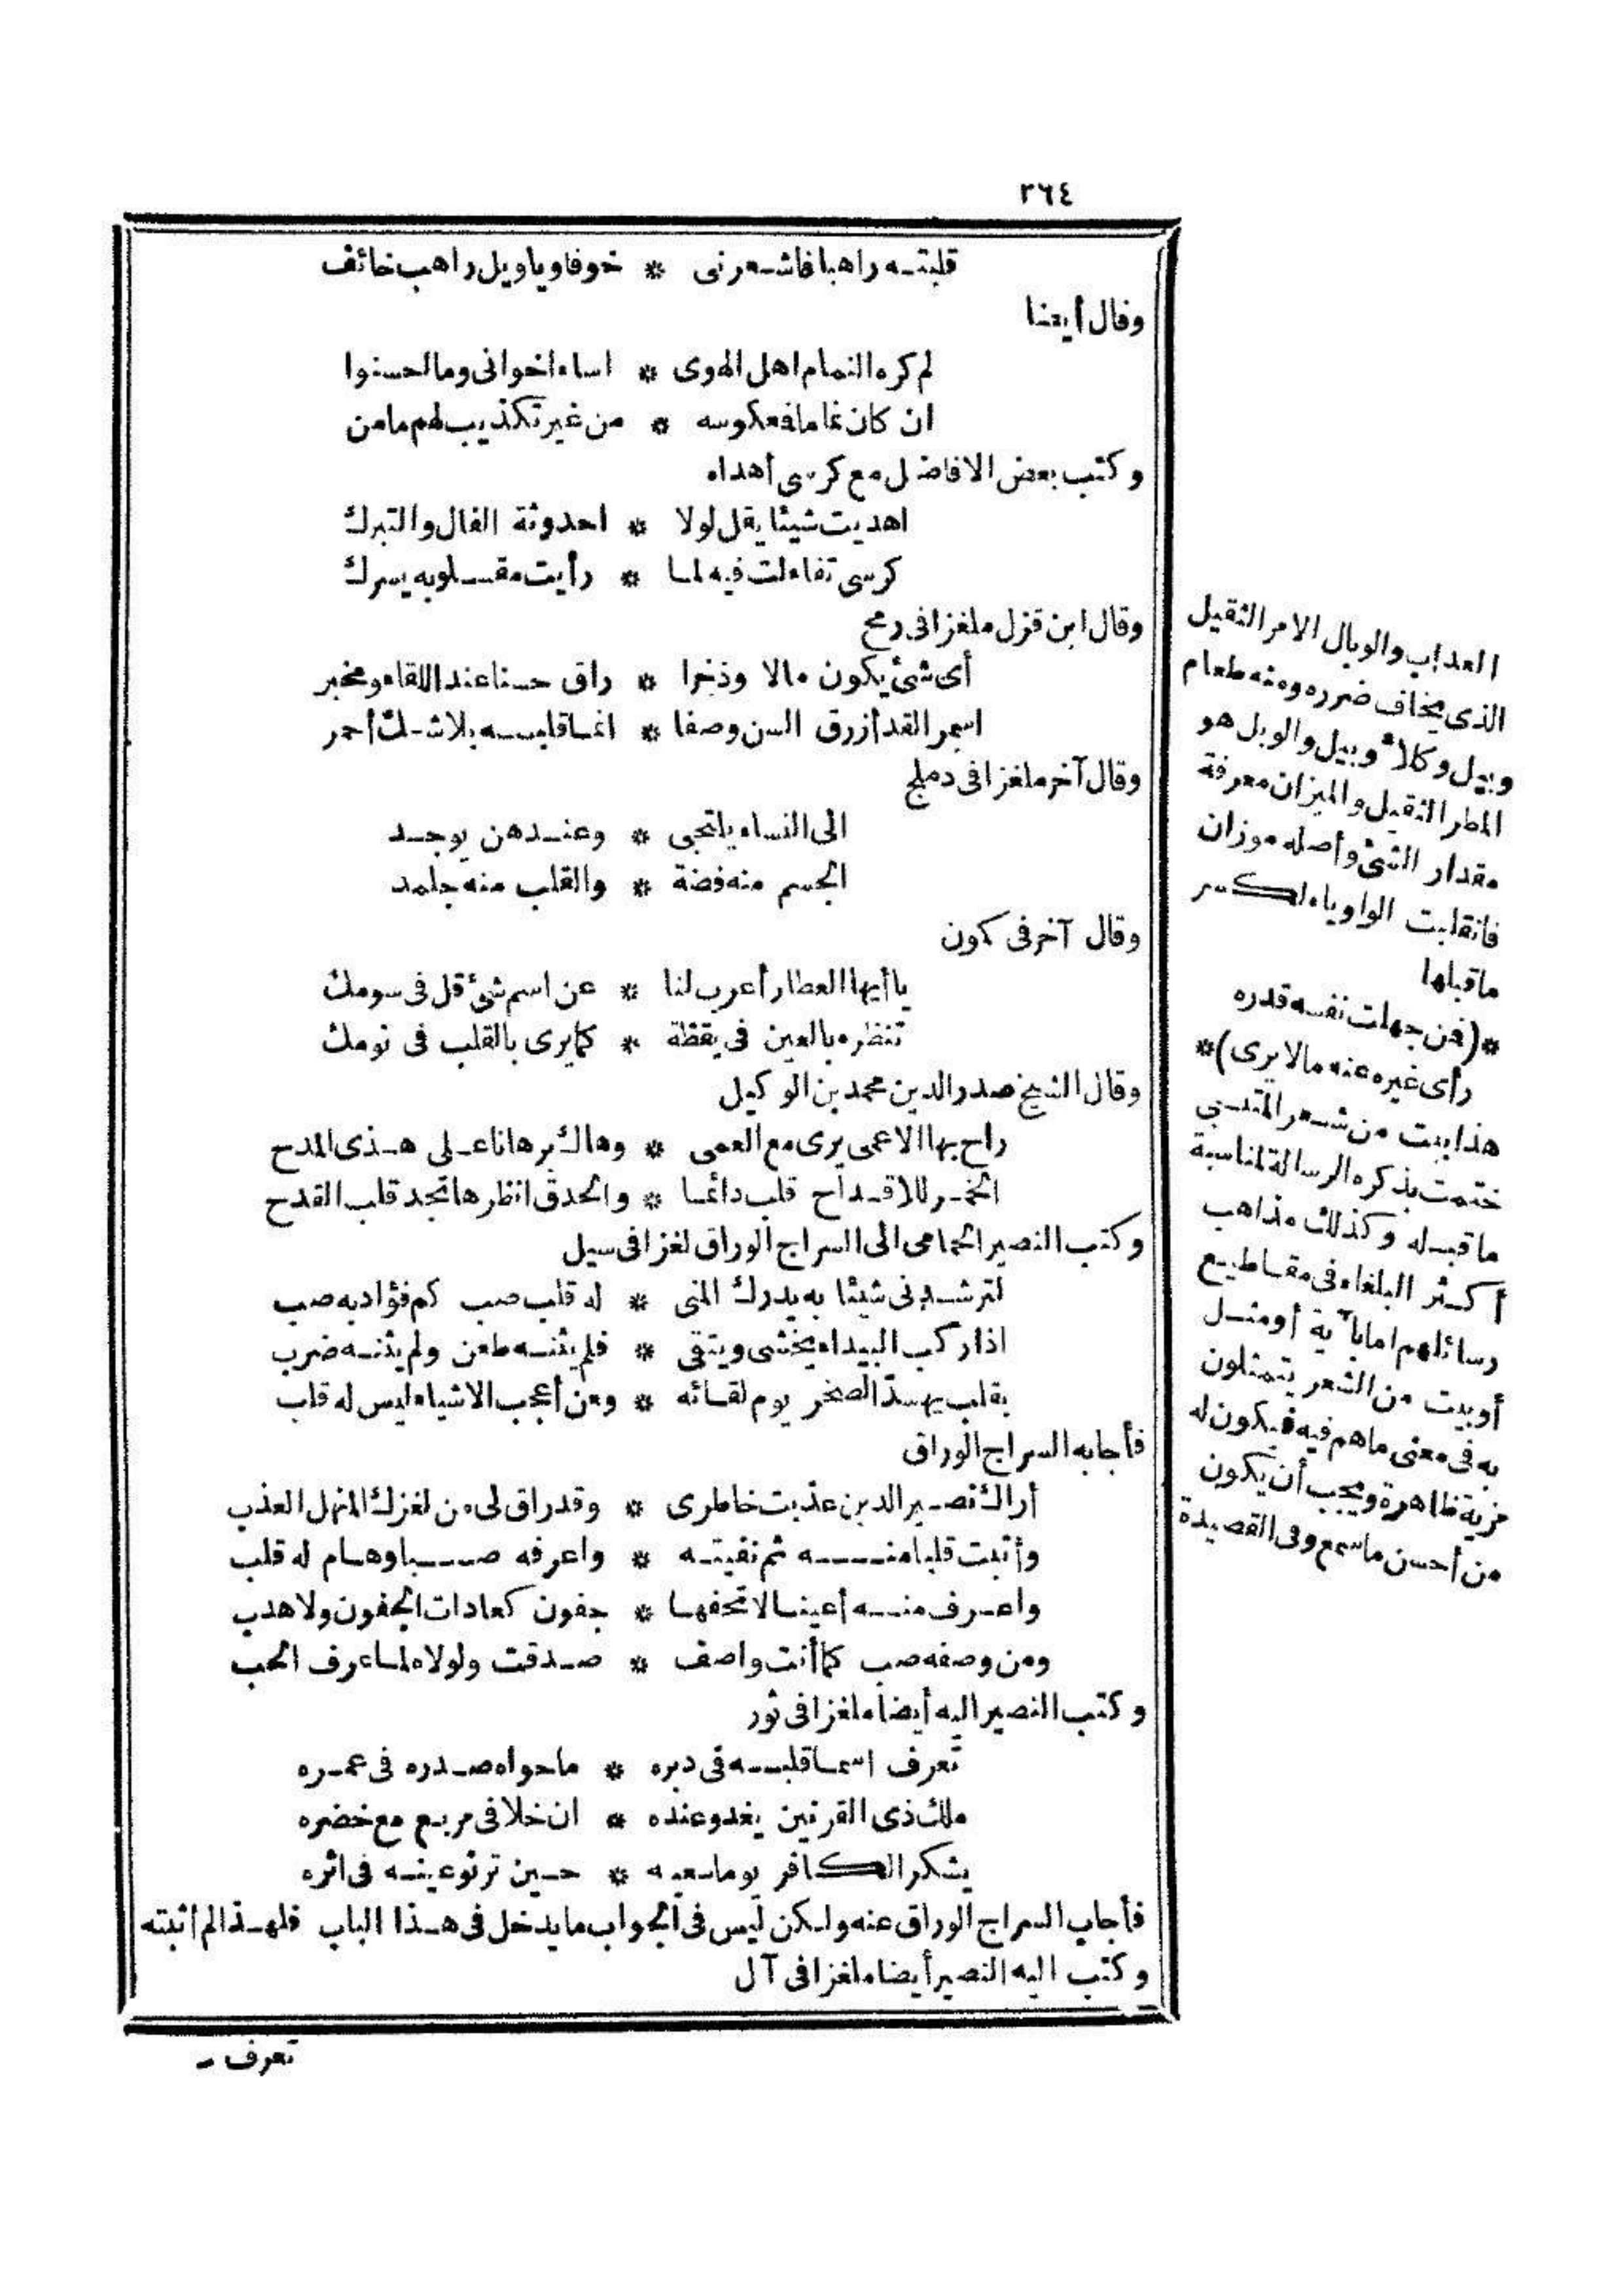 ٣٦٤
قلبته راهبا فاشعرنى * خوفا وياويل راهب خائف
وقال أيضا
لم كره النمام اهل الهوى * اساء اخوانى وما احسنوا
ان كان نماما فعكوسه * من غير تكذيب لهم مامن
وكتب بعض الافاضل مع كرسى أهداه
اهديت شيئا يقل لولا * احدوثة الفال والتبرك
كرسى تفاءلت فيه لما * رأيت مقلوبه يسرك
وقال ابن قزل ملغزا فى رمح
أى شئ يكون مالا وذخرا * راق حسنا عند اللقاء ومخبر
اسمر القد أزرق السن وصفا * انما قلبه بلاشك أحمر
وقال آخر ملغزا فى دملج
الى النساء يلتجى * وعندهن يوجد
الجسم منه فضة * والقلب منه جلمد
وقال آخر فى كمون
يا أيها العطار أعرب لنا * عن اسم شئ قل فى سومك
تنظره بالعين فى يقظة * كما يرى بالقلب فى نومك
وقال الشيخ صدر الدين محمد بن الوكيل
راح بها الاعمى يرى مع العمى * وهاك برهانا على هذى المدح
الخمر للاقداح قلب دائما * والحدق انظرها تجد قلب القدح
وكتب النصير الحمامى الى السراج الوراق لغزا فى سيل
لترشدنى شيئا به يدرك المنى * له قلب صب كم فؤاد به صب
اذا ركب البيداء يخشى ويتقى * فلم يثنه طعن ولم يثنه ضرب
بقلب يهدّ الصخر يوم لقائه * ومن أعجب الاشياء ليس له قلب
فأجابه السراج الوراق
أراك نصير الدين عذبت خاطرى * وقد راق لى من لغزك المنهل العذب
وأثبت قلبا منه ثم نفيته * واعرفه صبا وهام له قلب
واعرف منه أعينا لا تحفها * جفون كعادات الجفون ولا هدب
ومن وصفه صب كما أنت واصف * صدقت ولولاه لما عرف الحب
وكتب النصير اليه أيضا ملغزا فى ثور
تعرف اسما قلبه فى دبره * ما حواه صدره فى عمره
ملك ذى القرنين يغدو عنده * ان خلا فى مربع مع خضره
يشكر الكافر يوما سعيه * حين ترنو عينه فى اثره
فأجاب السراج الوراق عنه ولكن ليس فى الجواب ما يدخل فى هذا الباب فلهذا لم اثبته
وكتب اليه النصير أيضا ملغزا فى آل
تعرف
العذاب والوبال الامر الثقيل
الذى يخاف ضرره ومنه طعام
وبيل وكلأ وبيل والوبل هو
المطر الثقيل والميزان معرفة
مقدار الشئ وأصله موزان
فانقلبت الواو ياء لكسر
ما قبلها
*(فمن جهلت نفسه قدره
رأى غيره عنه مالا يرى)*
هذا بيت من شعر المتنبى
ختمت بذكره الرسالة لمناسبة
ما قبله وكذلك مذاهب
أكثر البلغاء فى مقاطيع
رسائلهم اما بآية أو مثل
أو بيت من الشعر يتمثلون
به فى معنى ما هم فيه فيكون له
مزية ظاهرة ويجب أن يكون
من أحسن ما سمع وفى القصيدة